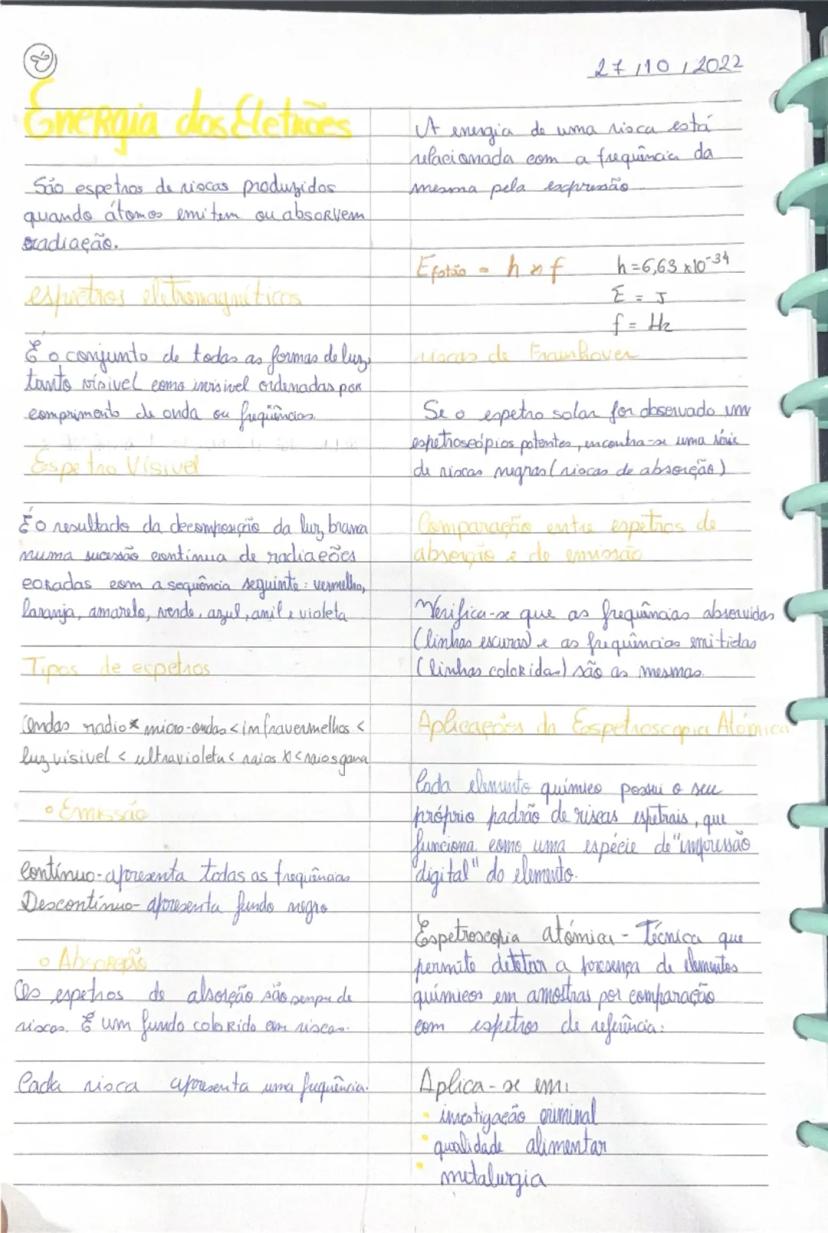 27/10/2022
Energia dos Eletrões
São espetros de riscas produzidos
quando átomos emitem ou absorvem
radiação.
espetros eletromagnéticos
É o conjunto de todas as formas de luz,
tanto visivel como invisivel ordenadas por
comprimento de onda ou frequências.
Espetro Vísivel
É o resultado da decomposição da luz branca
numa sucessão contínua de radiações
coradas com a sequência seguinte: vermelho,
laranja, amarelo, verde, azul, anil e violeta
Tipos de espetros
Ondas radio < micro-ondas < infravermelhos <
luz visivel < ultravioleta < raios X < raios gama
• Emissão
Contínuo - apresenta todas as frequências
Descontínuo - apresenta fundo negro
• Absorção
Os espetros de absorção são sempre de
riscas. É um fundo colorido com riscas.
Cada risca apresenta uma frequência.
A energia de uma risca está
relacionada com a frequência da
mesma pela expressão
Efotão = h x f h = 6,63 x10⁻³⁴
E = J
f = Hz
riscas de Fraunhover
Se o espetro solar for observado um
espetroscópios potentes, encontra-se uma série
de riscas negras (riscas de absorção)
Comparação entre espetros de
absorção e de emissão
Verifica-se que as frequências absorvidas
(linhas escuras) e as frequências emitidas
(linhas coloridas) são as mesmas.
Aplicações da Eespetroscopia Atómica
Cada elemento químico possui o seu
próprio padrão de riscas espetrais, que
funciona como uma espécie de "impressão
digital" do elemento.
Espetroscopia atómica - Técnica que
permite detetar a presença de elementos
químicos em amostras por comparação
com espetros de referência.
Aplica-se em:
• investigação criminal
• qualidade alimentar
• metalurgia